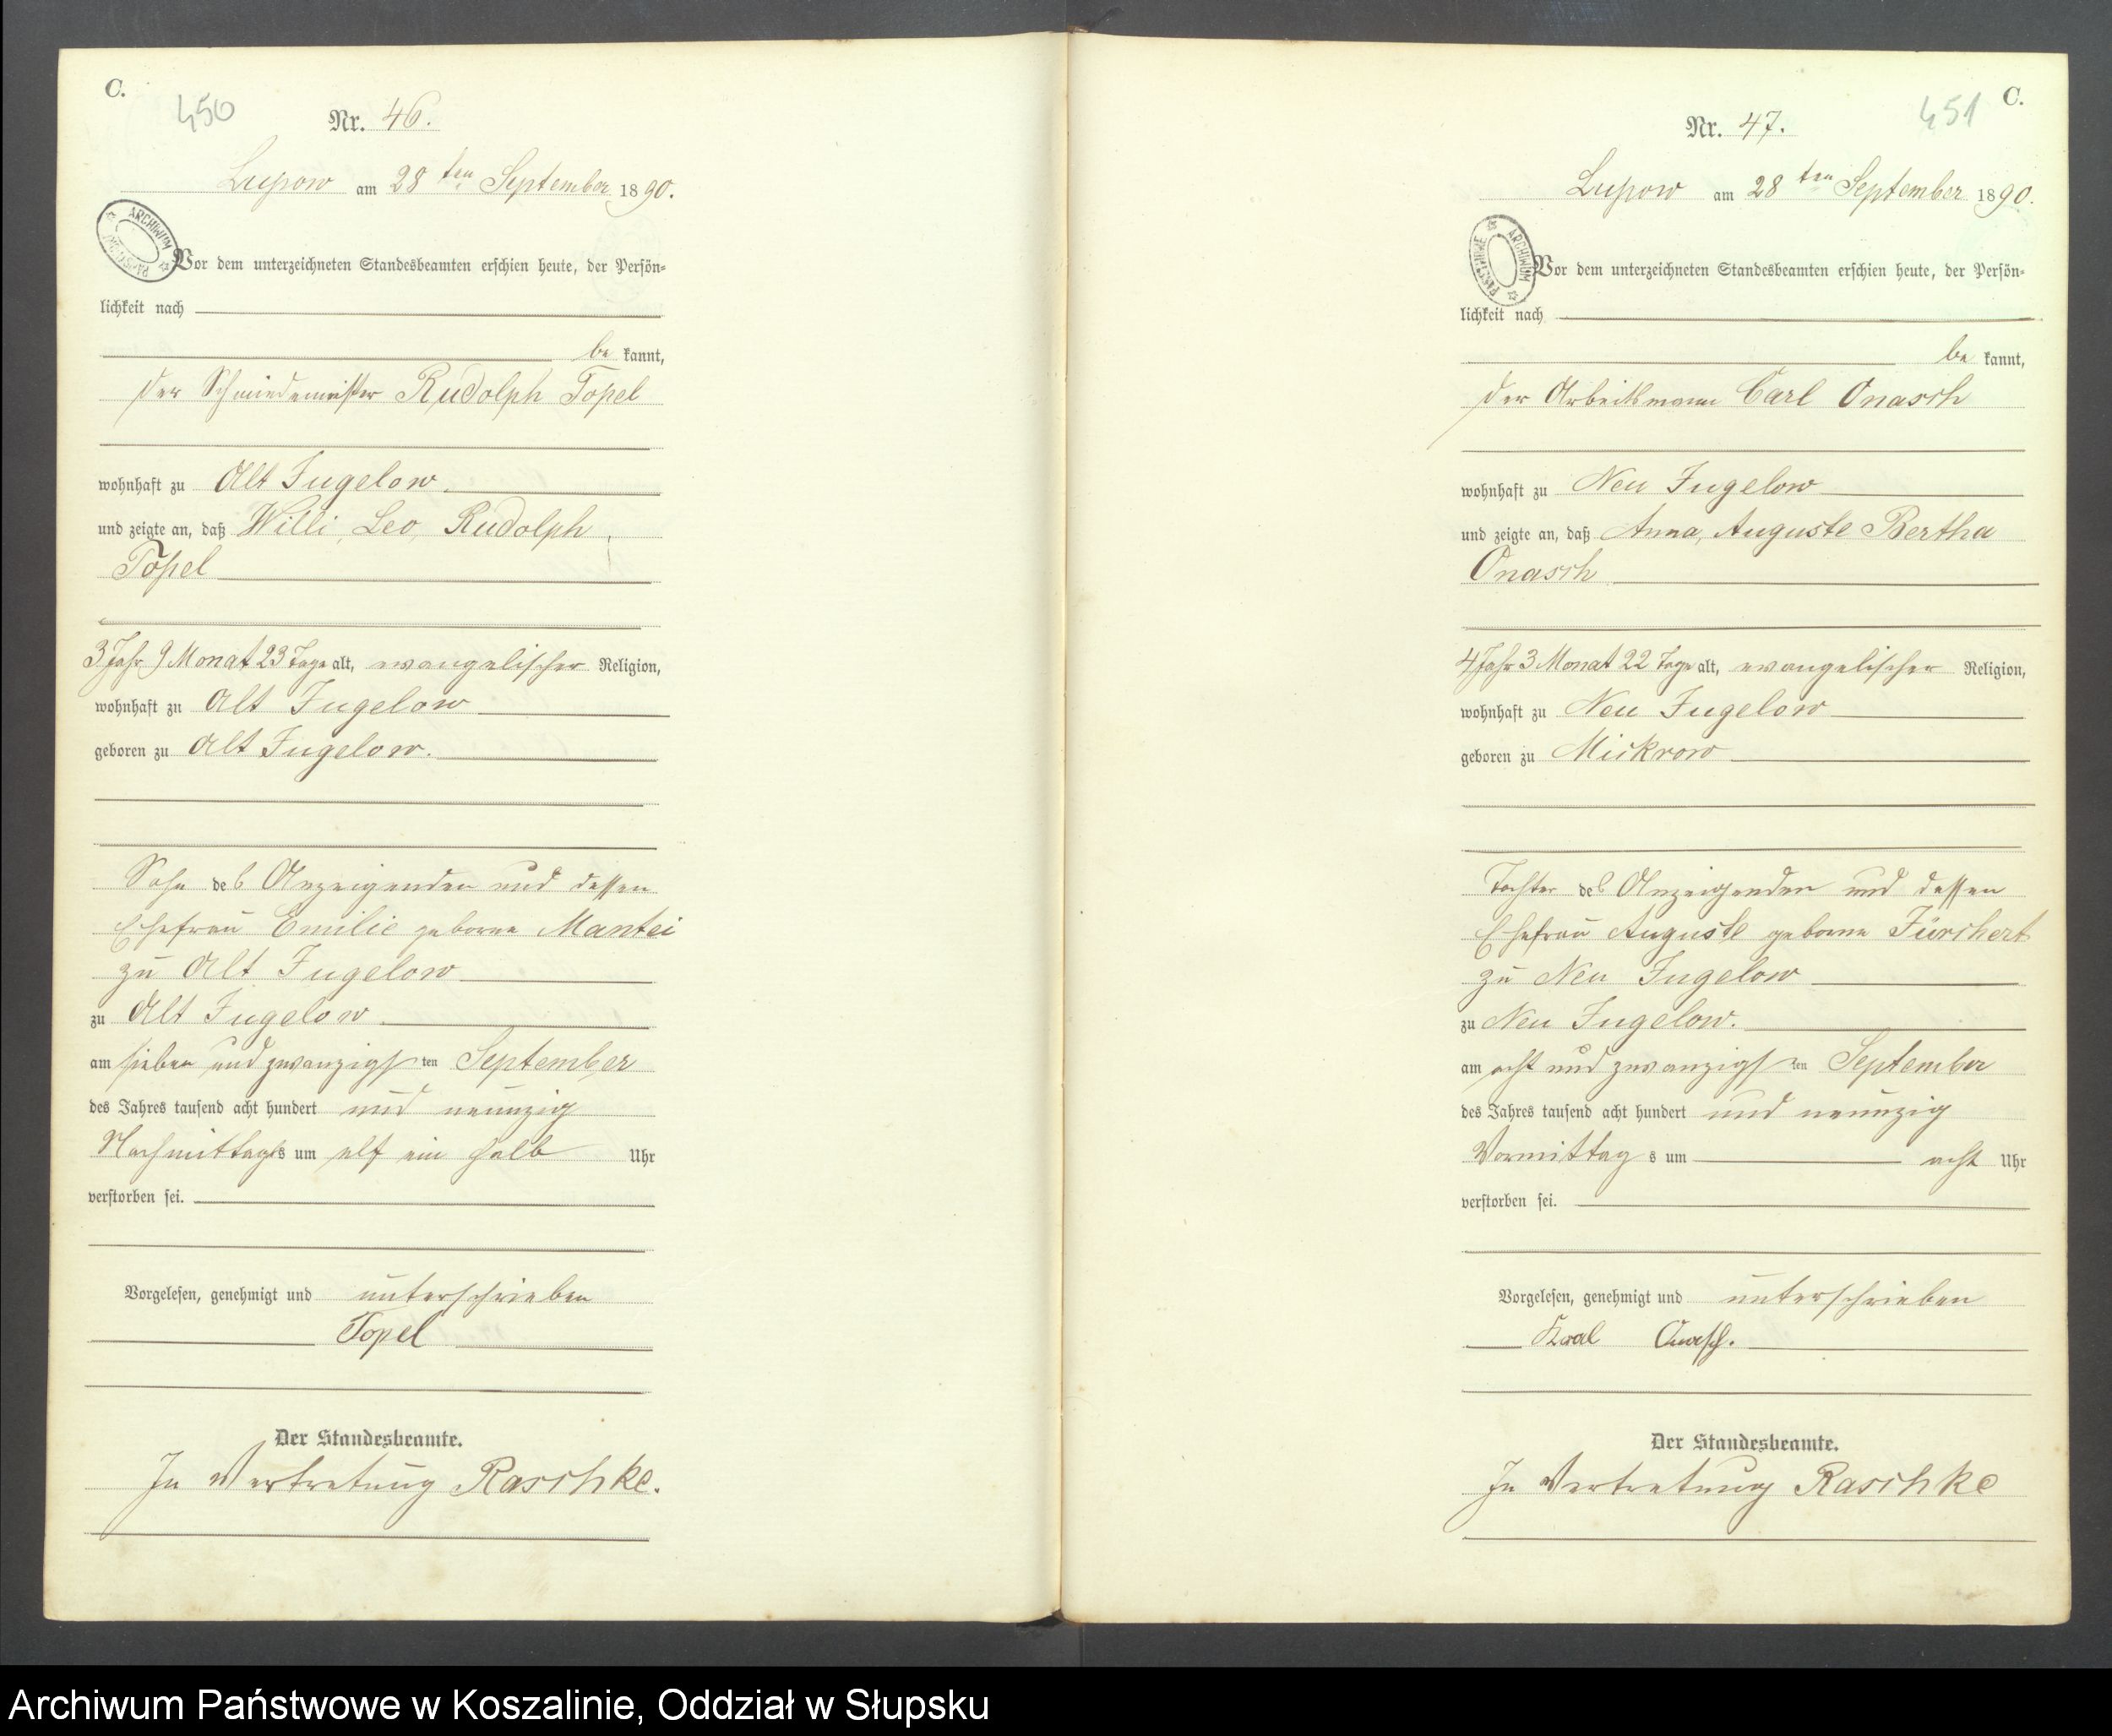 C.
450
Nr. 46.
Lupow am 28 ten September 1890.
ARCHIWUM PAŃSTWOWE
Vor dem unterzeichneten Standesbeamten erschien heute, der Persön-
lichkeit nach
be kannt,
der Schmiedemeister Rudolph Topel
wohnhaft zu Alt Jugelow
und zeigte an, daß Willi, Leo, Rudolph
Topel
3 Jahr 9 Monat 23 Tage alt, evangelischer Religion,
wohnhaft zu Alt Jugelow
geboren zu Alt Jugelow.
Sohn des Anzeigenden und dessen
Ehefrau Emilie geborne Mantei
zu Alt Jugelow
zu Alt Jugelow
am sieben und zwanzigsten September
des Jahres tausend acht hundert und neunzig
Nachmittags um elf ein halb Uhr
verstorben sei.
Vorgelesen, genehmigt und unterschrieben
Topel
Der Standesbeamte.
In Vertretung Raschke.
C.
451
Nr. 47.
Lupow am 28 ten September 1890.
ARCHIWUM PAŃSTWOWE
Vor dem unterzeichneten Standesbeamten erschien heute, der Persön-
lichkeit nach
be kannt,
der Arbeitsmann Carl Onasch
wohnhaft zu Neu Jugelow
und zeigte an, daß Anna, Auguste Bertha
Onasch
4 Jahr 3 Monat 22 Tage alt, evangelischer Religion,
wohnhaft zu Neu Jugelow
geboren zu Mickrow
Tochter des Anzeigenden und dessen
Ehefrau Auguste geborne Fürchert
zu Neu Jugelow
zu Neu Jugelow.
am acht und zwanzigsten September
des Jahres tausend acht hundert und neunzig
Vormittags um acht Uhr
verstorben sei.
Vorgelesen, genehmigt und unterschrieben
Karl Onasch.
Der Standesbeamte.
In Vertretung Raschke
Archiwum Państwowe w Koszalinie, Oddział w Słupsku